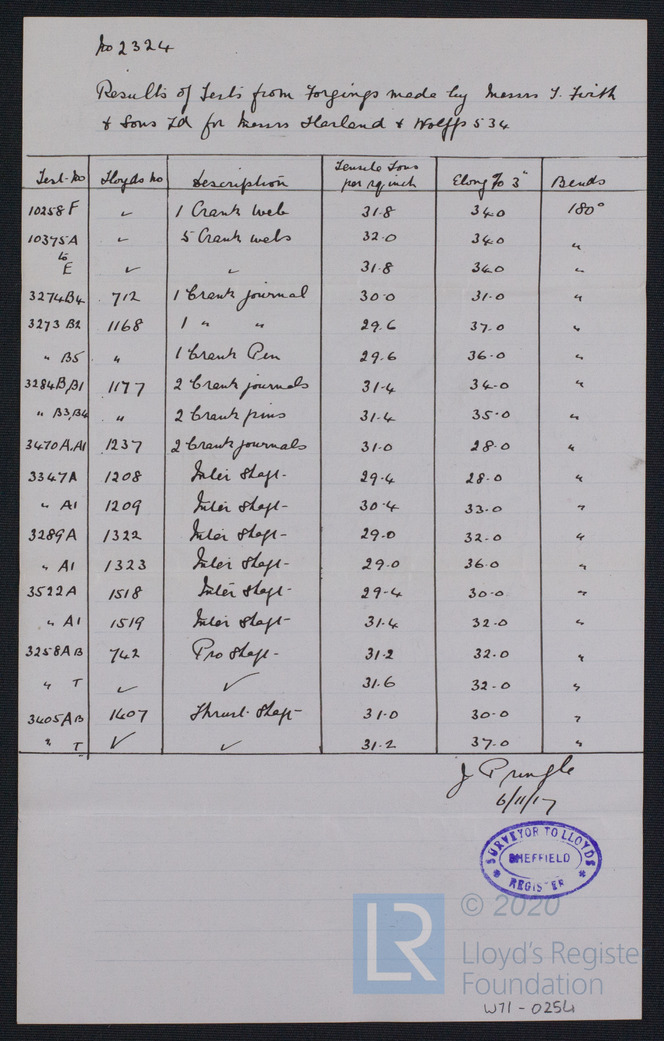 No 2324
Results of Tests from Forgings made by Messrs T. Firth
& Sons Ld for Messrs Harland & Wolffs 534
Test No Lloyds No Description Tensile Tons per sq inch Elong % 3" Bends
10258 F " 1 Crank Web 31.8 34.0 180°
10375A " 5 Crank webs 32.0 34.0 "
to E " " 31.8 34.0 "
3274B4 712 1 Crank journal 30.0 31.0 "
3273 B2 1168 1 " " 29.6 37.0 "
" B5 " 1 Crank Pin 29.6 36.0 "
3284B,B1 1177 2 Crank journals 31.4 34.0 "
" B3,B4 " 2 Crank pins 31.4 35.0 "
3470A,A1 1237 2 Crank journals 31.0 28.0 "
3347A 1208 Inter Shaft 29.4 28.0 "
" A1 1209 Inter Shaft 30.4 33.0 "
3289A 1322 Inter Shaft 29.0 32.0 "
" A1 1323 Inter Shaft 29.0 36.0 "
3522A 1518 Inter Shaft 29.4 30.0 "
" A1 1519 Inter Shaft 31.4 32.0 "
3258AB 742 Pro Shaft 31.2 32.0 "
" T " " 31.6 32.0 "
3405AB 1407 Thrust Shaft 31.0 30.0 "
" T " " 31.2 37.0 "
J Pringle
6/11/17
SURVEYOR TO LLOYDS
SHEFFIELD
REGISTER
© 2020
LR
Lloyd's Registe
Foundation
W71-0254